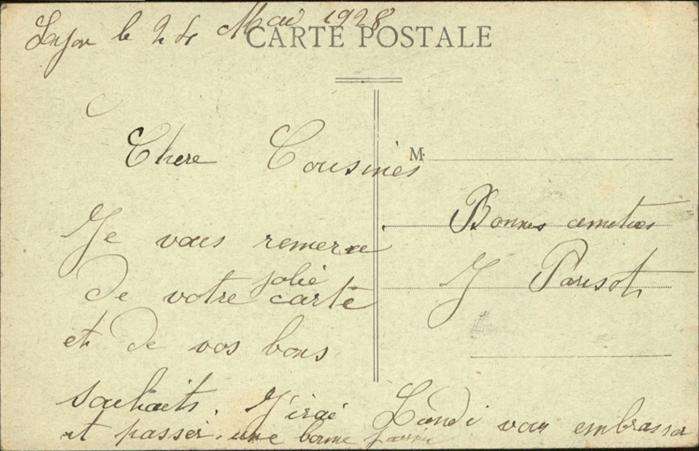 Lyon le 24 Mai 1928
CARTE POSTALE
Chere Cousines
M.
Je vous remercie
de votre jolie carte
et de vos bons
souhaits. J'irai Lundi vous embrasser
et passer une bonne
Bonnes amities
J Parisot